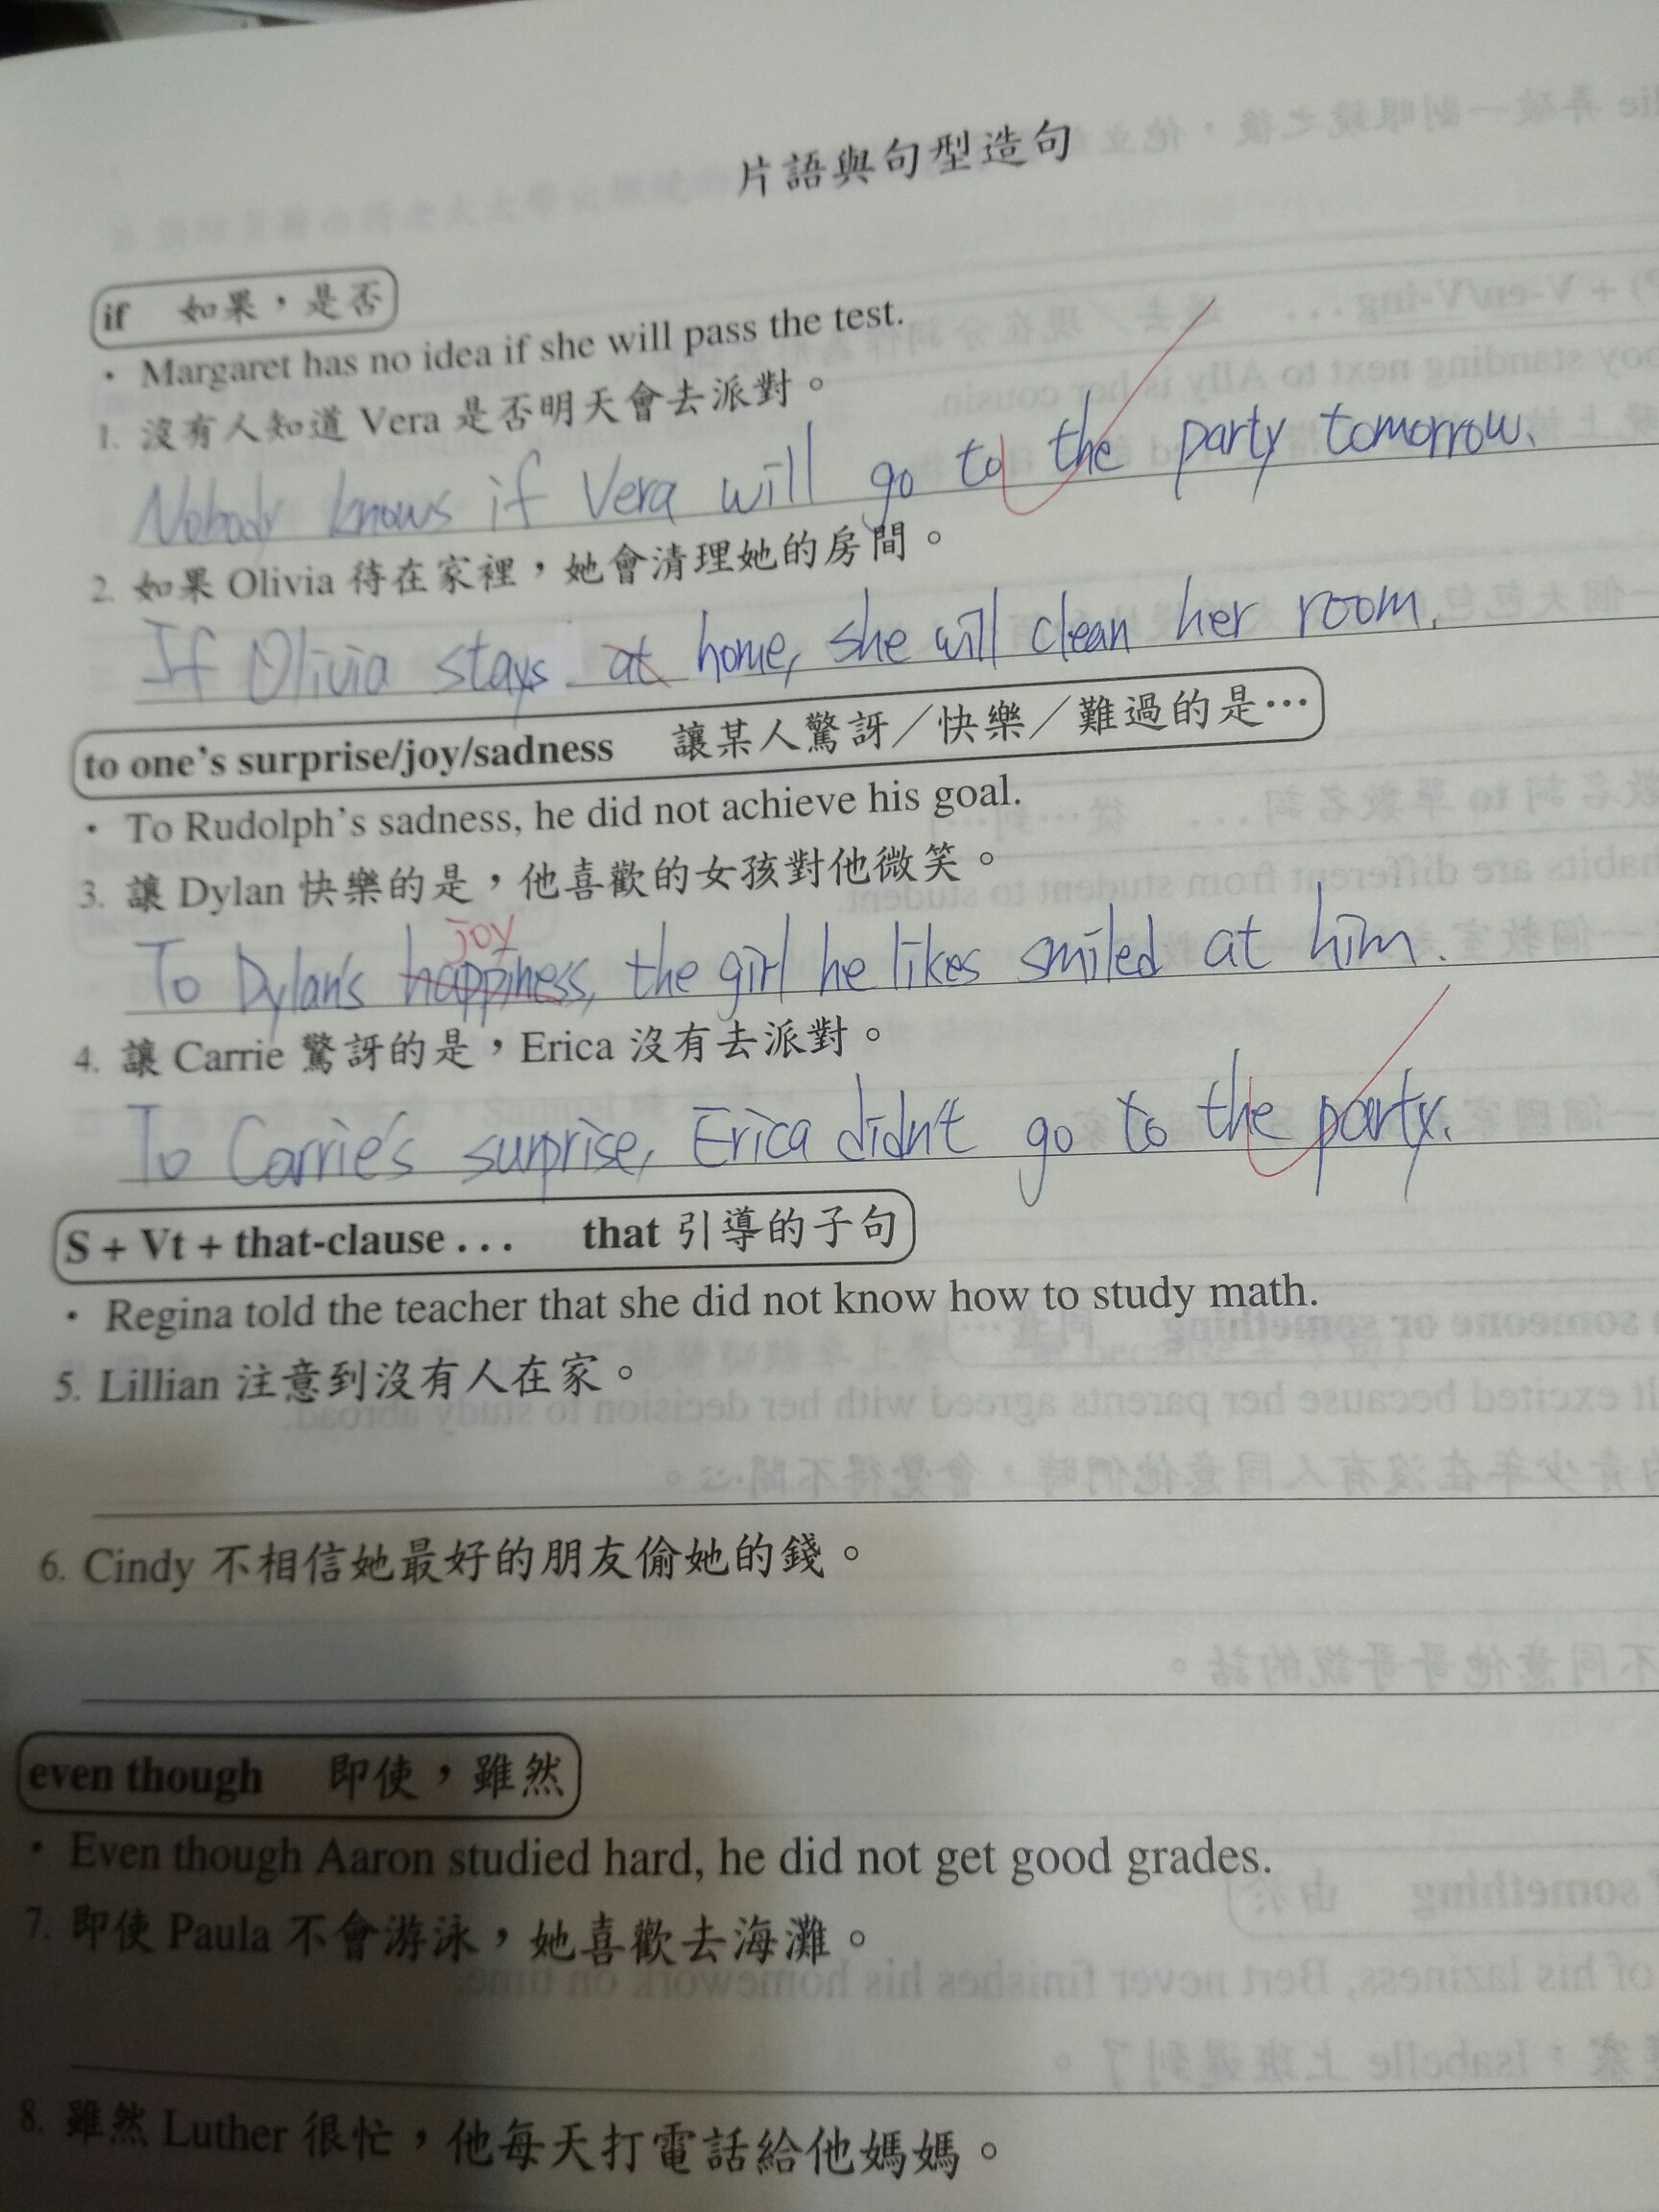 片語與句型造句
if 如果，是否
• Margaret has no idea if she will pass the test.
1. 沒有人知道 Vera 是否明天會去派對。
Nobody knows if Vera will go to the party tomorrow.
2. 如果 Olivia 待在家裡，她會清理她的房間。
If Olivia stays at home, she will clean her room.
to one's surprise/joy/sadness 讓某人驚訝／快樂／難過的是…
• To Rudolph's sadness, he did not achieve his goal.
3. 讓 Dylan 快樂的是，他喜歡的女孩對他微笑。
joy
To Dylan's happiness, the girl he likes smiled at him.
4. 讓 Carrie 驚訝的是，Erica 沒有去派對。
To Carrie's surprise, Erica didn't go to the party.
S + Vt + that-clause . . . that 引導的子句
• Regina told the teacher that she did not know how to study math.
5. Lillian 注意到沒有人在家。
6. Cindy 不相信她最好的朋友偷她的錢。
even though 即使，雖然
• Even though Aaron studied hard, he did not get good grades.
7. 即使 Paula 不會游泳，她喜歡去海灘。
8. 雖然 Luther 很忙，他每天打電話給他媽媽。